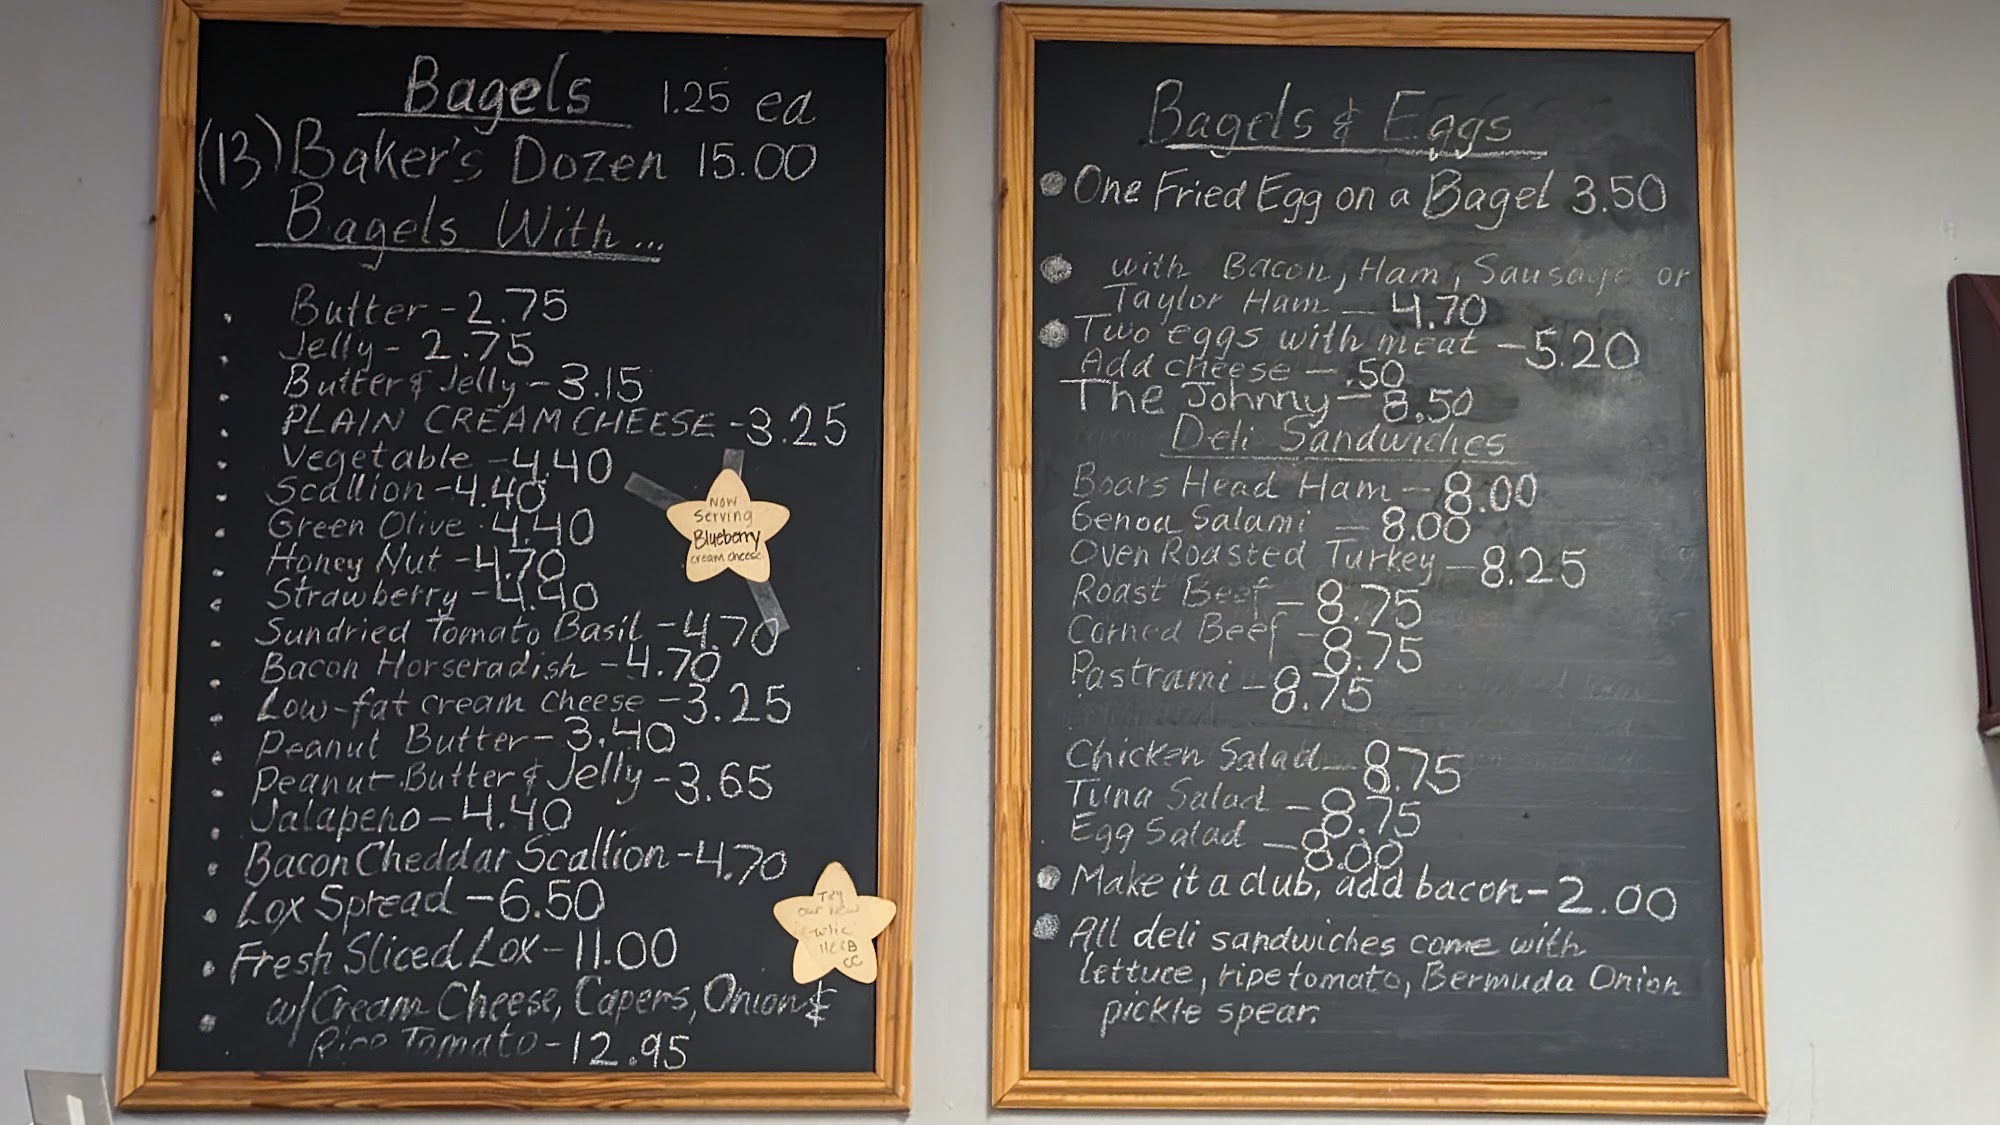 Bagels 1.25 ea
(13) Baker's Dozen 15.00
Bagels With...
Butter - 2.75
Jelly - 2.75
Butter & Jelly - 3.15
PLAIN CREAM CHEESE - 3.25
Vegetable - 4.40
Scallion - 4.40
Green Olive - 4.40
Honey Nut - 4.70
Strawberry - 4.40
Sundried Tomato Basil - 4.70
Bacon Horseradish - 4.70
Low-fat cream cheese - 3.25
Peanut Butter - 3.40
Peanut Butter & Jelly - 3.65
Jalapeno - 4.40
Bacon Cheddar Scallion - 4.70
Lox Spread - 6.50
Fresh Sliced Lox - 11.00
w/ Cream Cheese, Capers, Onion &
Tomato - 12.95
Now
Serving
Blueberry
cream cheese
Try
our new
HERB
CC
Bagels & Eggs
One Fried Egg on a Bagel 3.50
with Bacon, Ham, Sausage or
Taylor Ham - 4.70
Two eggs with meat - 5.20
Add cheese - .50
The Johnny - 8.50
Deli Sandwiches
Boars Head Ham - 8.00
Genoa Salami - 8.00
Oven Roasted Turkey - 8.25
Roast Beef - 8.75
Corned Beef - 8.75
Pastrami - 8.75
Chicken Salad - 8.75
Tuna Salad - 8.75
Egg Salad - 8.00
Make it a club, add bacon - 2.00
All deli sandwiches come with
lettuce, ripe tomato, Bermuda Onion
pickle spear.